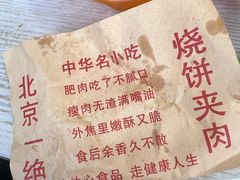 烧饼夹肉
中华名小吃
肥肉吃了不腻口
瘦肉无渣满嘴油
外焦里嫩酥又脆
食后余香久不散
心食品 走健康人生
北京一绝